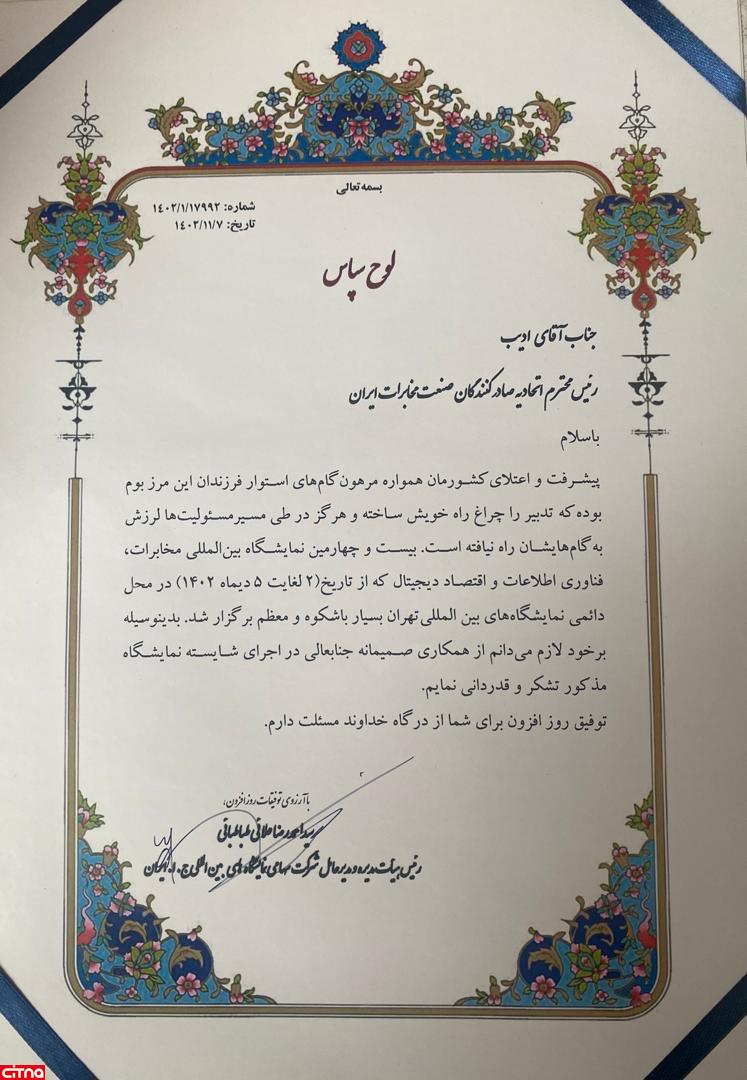 بسمه تعالی
شماره: ۱۴۰۲/۱/۱۷۹۹۲
تاریخ: ۱۴۰۲/۱۱/۷
لوح سپاس
جناب آقای ادیب
رئیس محترم اتحادیه صادرکنندگان صنعت مخابرات ایران
باسلام
پیشرفت و اعتلای کشورمان همواره مرهون گام‌های استوار فرزندان این مرز بوم
بوده که تدبیر را چراغ راه خویش ساخته و هرگز در طی مسیر مسئولیت‌ها لرزش
به گام‌هایشان راه نیافته است. بیست و چهارمین نمایشگاه بین‌المللی مخابرات،
فناوری اطلاعات و اقتصاد دیجیتال که از تاریخ(۲ لغایت ۵ دیماه ۱۴۰۲) در محل
دائمی نمایشگاه‌های بین المللی تهران بسیار باشکوه و معظم برگزار شد. بدینوسیله
برخود لازم می‌دانم از همکاری صمیمانه جنابعالی در اجرای شایسته نمایشگاه
مذکور تشکر و قدردانی نمایم.
توفیق روز افزون برای شما از درگاه خداوند مسئلت دارم.
با آرزوی توفیقات روزافزون،
سید احمدرضا علائی طباطبائی
رئیس هیأت مدیره و مدیرعامل شرکت سهامی نمایشگاه های بین المللی ج. ا. ایران
citna